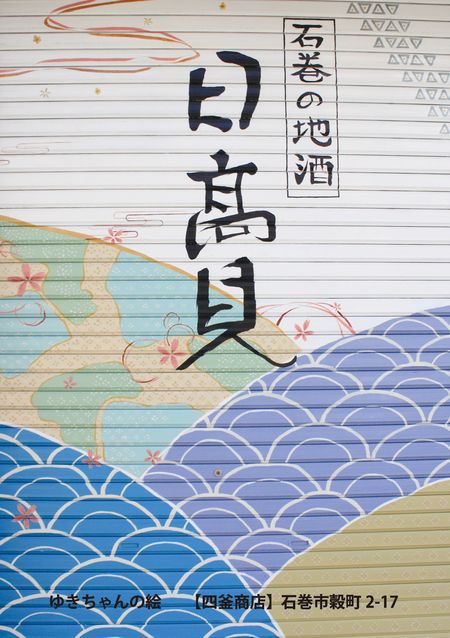 石巻の地酒
日髙見
ゆきちゃんの絵 【四釜商店】石巻市穀町 2-17